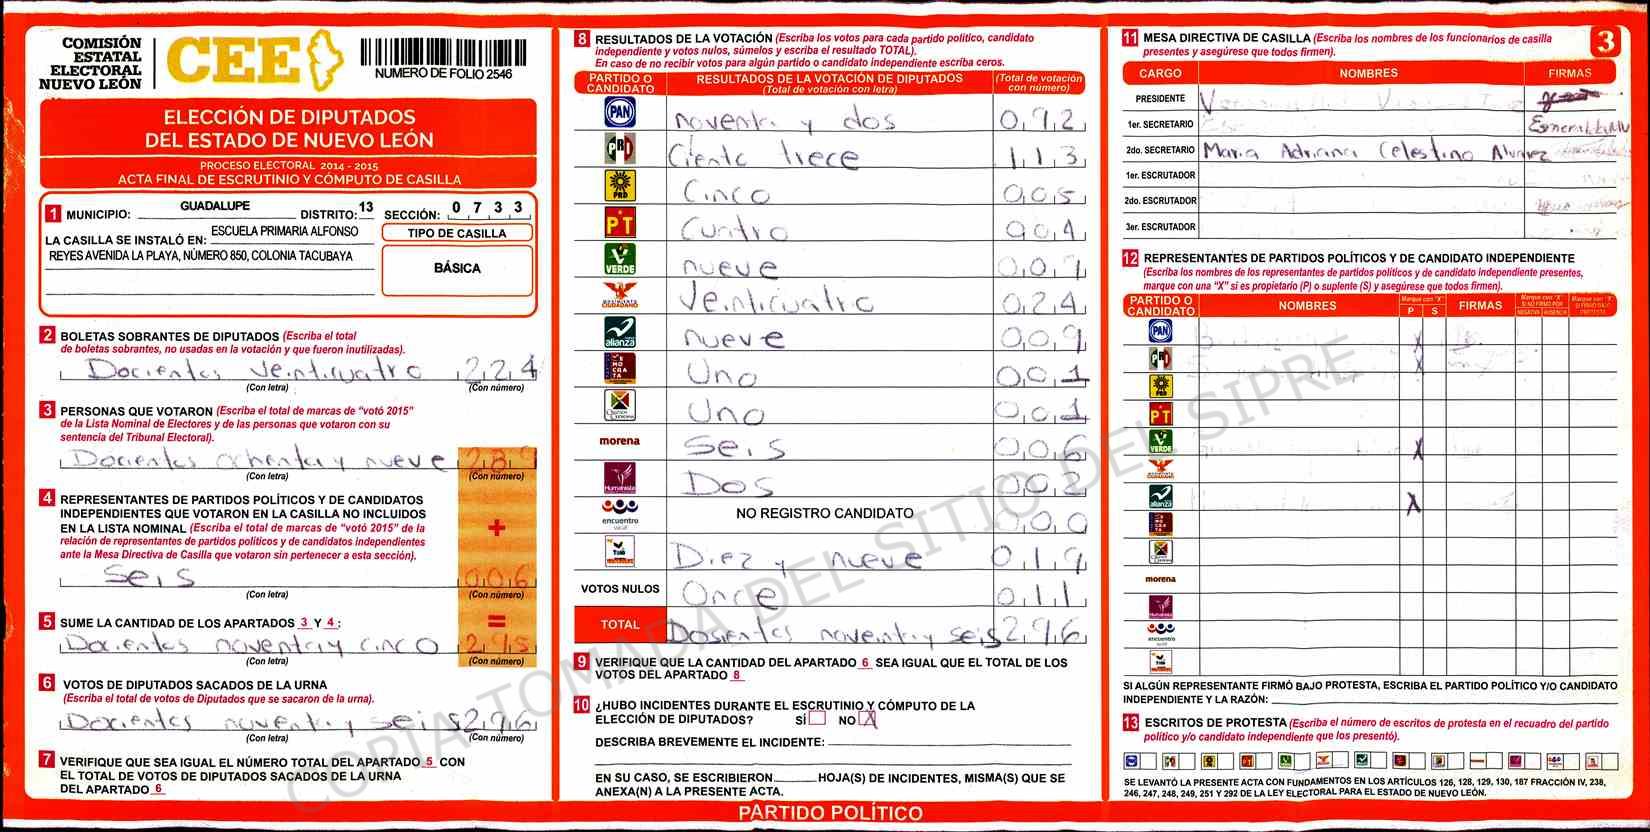 COMISIÓN
ESTATAL
ELECTORAL
NUEVO LEÓN
CEE
NUMERO DE FOLIO 2546
ELECCIÓN DE DIPUTADOS
DEL ESTADO DE NUEVO LEÓN
PROCESO ELECTORAL 2014 - 2015
ACTA FINAL DE ESCRUTINIO Y CÓMPUTO DE CASILLA
1 MUNICIPIO: GUADALUPE DISTRITO: 13 SECCIÓN: 0 7 3 3
LA CASILLA SE INSTALÓ EN: ESCUELA PRIMARIA ALFONSO
REYES AVENIDA LA PLAYA, NÚMERO 850, COLONIA TACUBAYA
TIPO DE CASILLA
BÁSICA
2 BOLETAS SOBRANTES DE DIPUTADOS (Escriba el total
de boletas sobrantes, no usadas en la votación y que fueron inutilizadas).
Docientos veinticuatro 224
(Con letra) (Con número)
3 PERSONAS QUE VOTARON (Escriba el total de marcas de “votó 2015”
de la Lista Nominal de Electores y de las personas que votaron con su
sentencia del Tribunal Electoral).
Docientos ochenta y nueve 289
(Con letra) (Con número)
4 REPRESENTANTES DE PARTIDOS POLÍTICOS Y DE CANDIDATOS
INDEPENDIENTES QUE VOTARON EN LA CASILLA NO INCLUIDOS
EN LA LISTA NOMINAL (Escriba el total de marcas de “votó 2015” de la
relación de representantes de partidos políticos y de candidatos independientes
ante la Mesa Directiva de Casilla que votaron sin pertenecer a esta sección).
+
Seis 006
(Con letra) (Con número)
5 SUME LA CANTIDAD DE LOS APARTADOS 3 Y 4:
=
Docientos noventa y cinco 295
(Con letra) (Con número)
6 VOTOS DE DIPUTADOS SACADOS DE LA URNA
(Escriba el total de votos de Diputados que se sacaron de la urna).
Docientos noventa y seis 296
(Con letra) (Con número)
7 VERIFIQUE QUE SEA IGUAL EL NÚMERO TOTAL DEL APARTADO 5 CON
EL TOTAL DE VOTOS DE DIPUTADOS SACADOS DE LA URNA
DEL APARTADO 6
8 RESULTADOS DE LA VOTACIÓN (Escriba los votos para cada partido político, candidato
independiente y votos nulos, súmelos y escriba el resultado TOTAL).
En caso de no recibir votos para algún partido o candidato independiente escriba ceros.
PARTIDO O CANDIDATO RESULTADOS DE LA VOTACIÓN DE DIPUTADOS (Total de votación con letra) (Total de votación con número)
PAN noventa y dos 092
PRI Ciento trece 113
PRD Cinco 005
PT Cuatro 004
VERDE nueve 009
MOVIMIENTO CIUDADANO Veinticuatro 024
alianza nueve 009
DEMOCRATA Uno 001
Uno 001
morena Seis 006
Humanista Dos 002
encuentro social NO REGISTRO CANDIDATO 000
Diez y nueve 019
VOTOS NULOS Once 011
TOTAL Dosientos noventa y seis 296
9 VERIFIQUE QUE LA CANTIDAD DEL APARTADO 6 SEA IGUAL QUE EL TOTAL DE LOS
VOTOS DEL APARTADO 8
10 ¿HUBO INCIDENTES DURANTE EL ESCRUTINIO Y CÓMPUTO DE LA
ELECCIÓN DE DIPUTADOS? SÍ NO X
DESCRIBA BREVEMENTE EL INCIDENTE:
EN SU CASO, SE ESCRIBIERON HOJA(S) DE INCIDENTES, MISMA(S) QUE SE
ANEXA(N) A LA PRESENTE ACTA.
PARTIDO POLÍTICO
11 MESA DIRECTIVA DE CASILLA (Escriba los nombres de los funcionarios de casilla
presentes y asegúrese que todos firmen).
3
CARGO NOMBRES FIRMAS
PRESIDENTE
1er. SECRETARIO
2do. SECRETARIO Maria Adriana Celestino Alvarez
1er. ESCRUTADOR
2do. ESCRUTADOR
3er. ESCRUTADOR
12 REPRESENTANTES DE PARTIDOS POLÍTICOS Y DE CANDIDATO INDEPENDIENTE
(Escriba los nombres de los representantes de partidos políticos y de candidato independiente presentes,
marque con una “X” si es propietario (P) o suplente (S) y asegúrese que todos firmen).
PARTIDO O CANDIDATO NOMBRES Marque con "X" P S FIRMAS
PAN X
PRI X
PRD
PT
VERDE X
alianza X
morena
encuentro
SI ALGÚN REPRESENTANTE FIRMÓ BAJO PROTESTA, ESCRIBA EL PARTIDO POLÍTICO Y/O CANDIDATO
INDEPENDIENTE Y LA RAZÓN:
13 ESCRITOS DE PROTESTA (Escriba el número de escritos de protesta en el recuadro del partido
político y/o candidato independiente que los presentó).
SE LEVANTÓ LA PRESENTE ACTA CON FUNDAMENTOS EN LOS ARTÍCULOS 126, 128, 129, 130, 187 FRACCIÓN IV, 238,
246, 247, 248, 249, 251 Y 292 DE LA LEY ELECTORAL PARA EL ESTADO DE NUEVO LEÓN.
COPIA TOMADA DEL SITIO DEL SIPRE